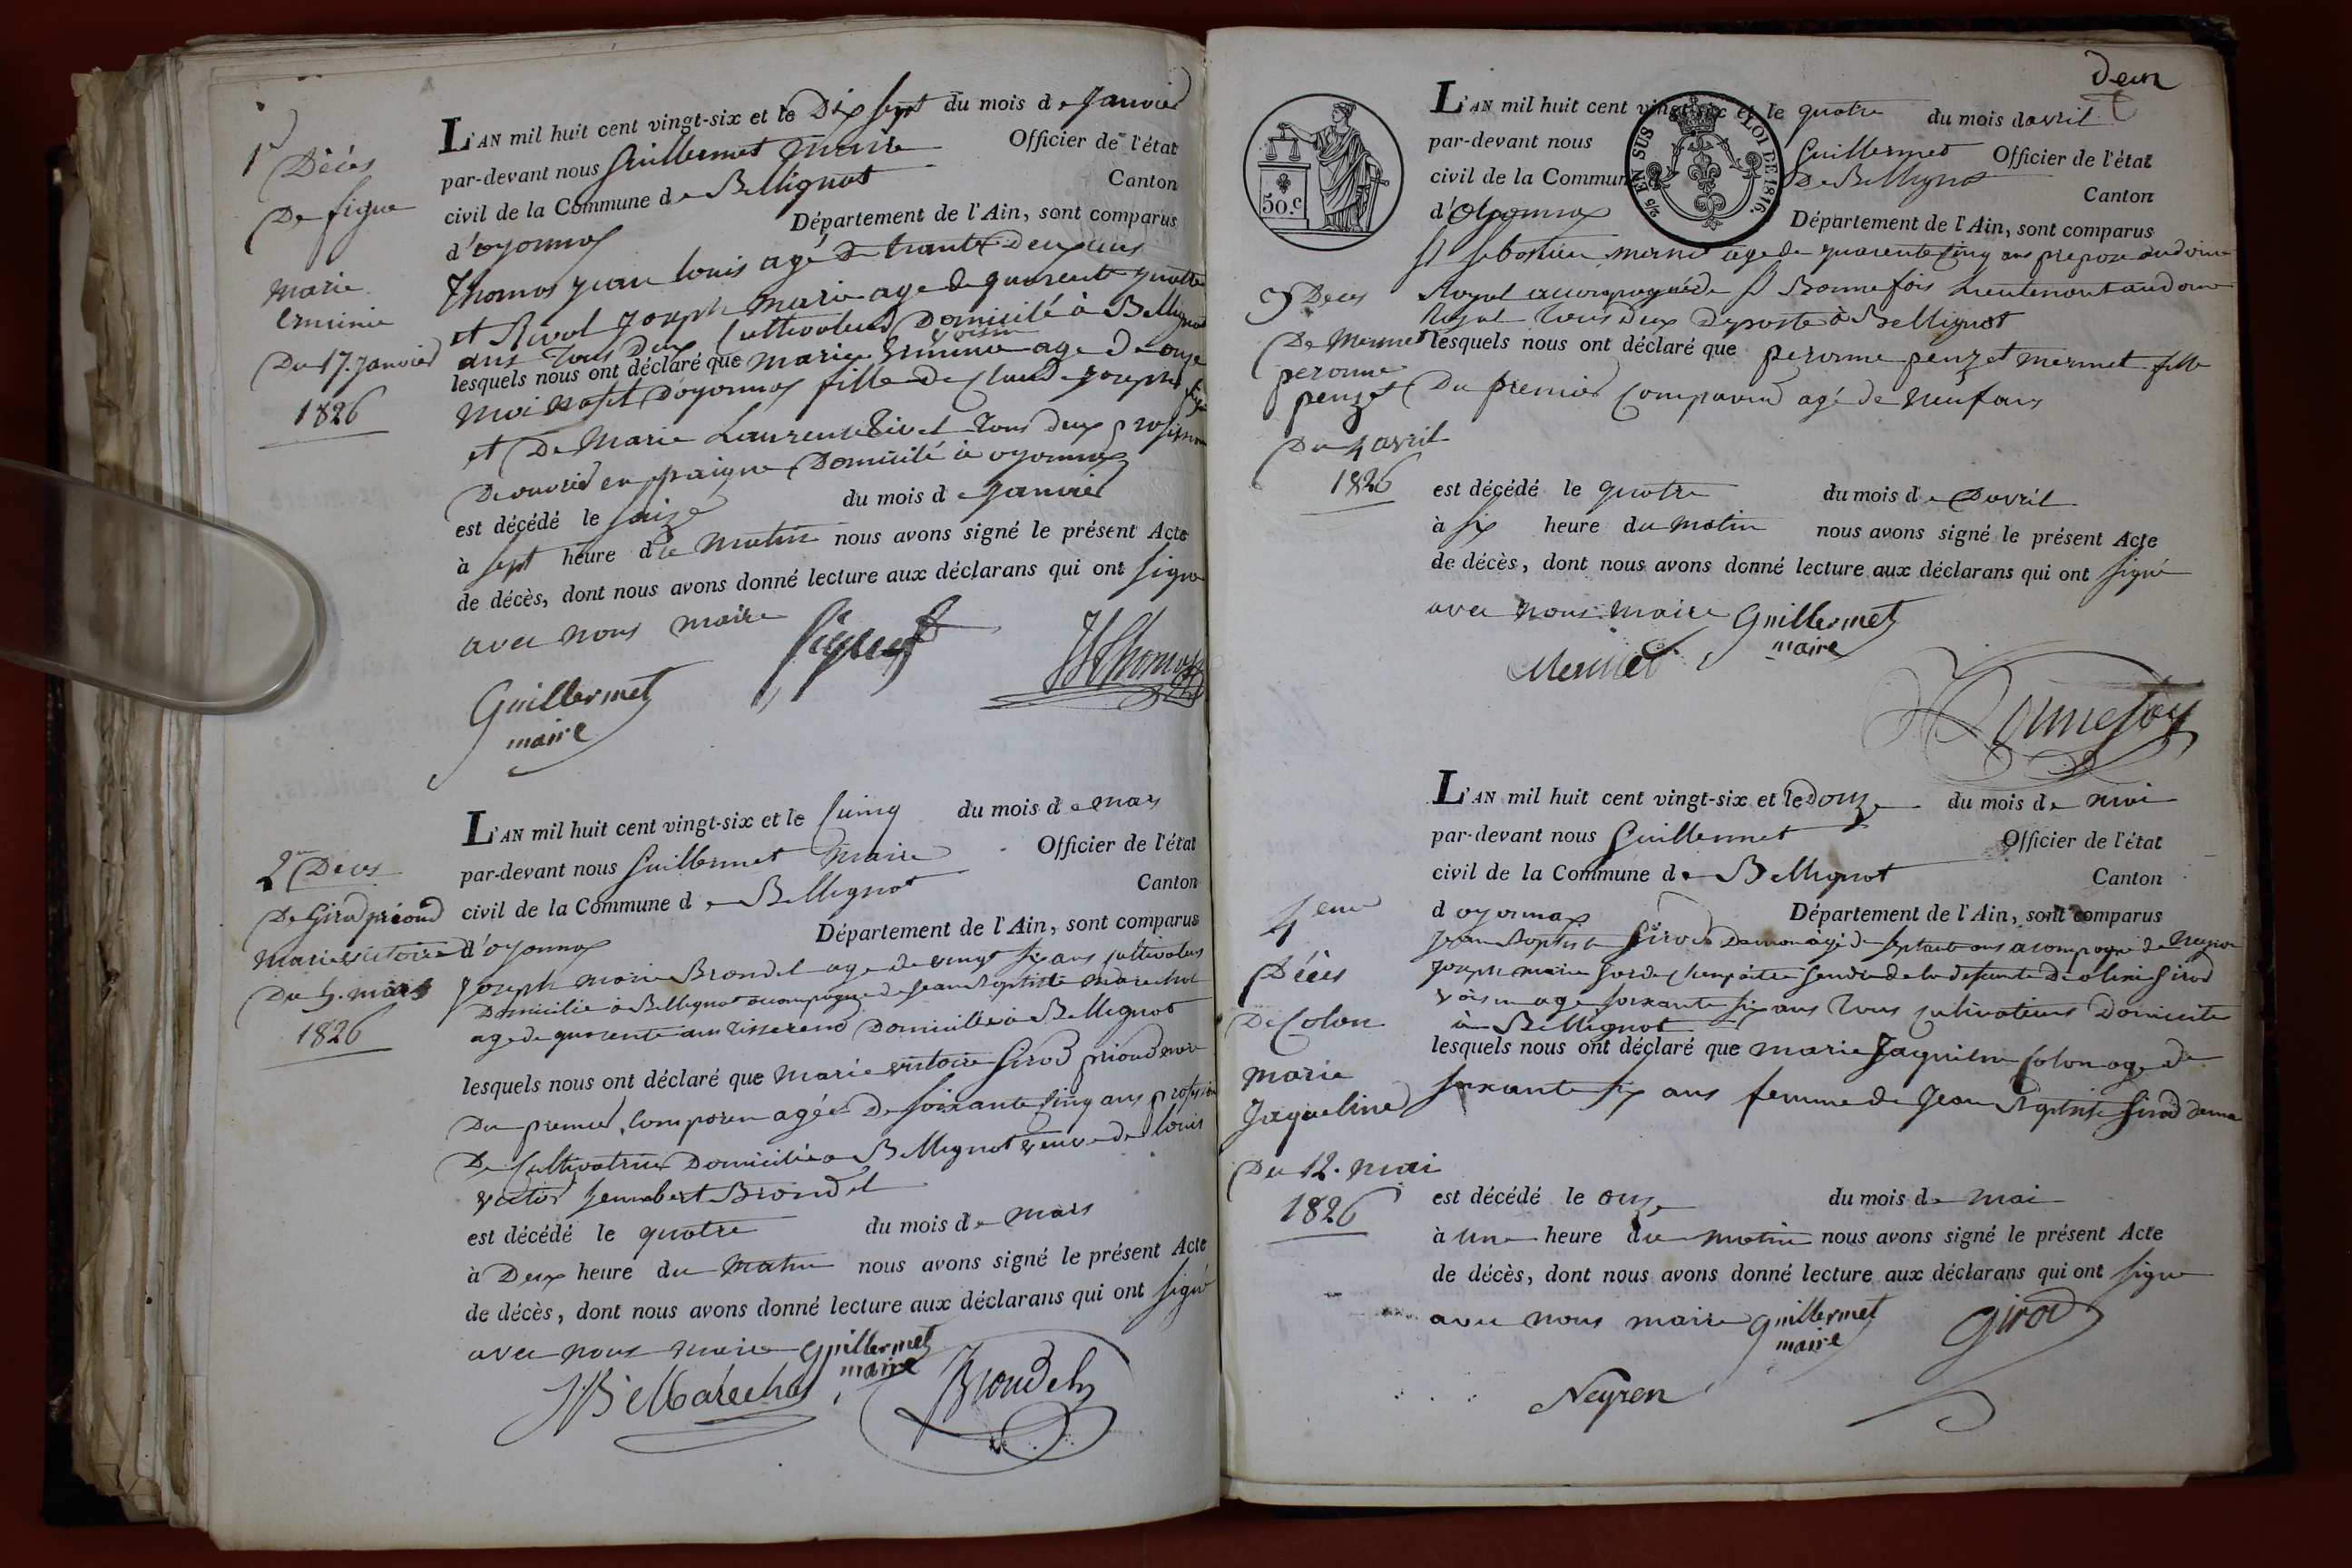 1er
Décès
De figue
marie
erminie
Du 17. Janvier
1826
L'AN mil huit cent vingt-six et le Dix sept du mois de Janvier
par-devant nous Guillermet maire Officier de l'état
civil de la Commune de Bellignat Canton
d'oyonnax Département de l'Ain, sont comparus
Thomas jean louis agé de trante Deux ans
et Rivol joseph marie age de quarente quattre
ans Tous Deux Cultivateurs Domicilé à Bellignat
voisin
lesquels nous ont déclaré que marie erminie age de onze
moi D'oyonnax fille de Claude joseph
et De Marie Laurence Rivol Tous deux
De ouvrier en paigne Domicilé à oyonnax
est décédé le saize du mois de janvier
à sept heure de matin nous avons signé le présent Acte
de décès, dont nous avons donné lecture aux déclarans qui ont signé
avec nous maire
Guillermet
maire
JLThomas
2me Deces
De Girod prioud
marie victoire
Du 5. mars
1826
L'AN mil huit cent vingt-six et le Cuinq du mois de mars
par-devant nous Guillermet maire Officier de l'état
civil de la Commune de Bellignat Canton
d'oyonnax Département de l'Ain, sont comparus
Joseph marie Brondel age de vingt six ans cultivateur
Domicilié à Bellignat acompagné de Jean Baptiste marechal
age de quarente ans tisserend Domicilié à Bellignat
lesquels nous ont déclaré que Marie victoire Girod prioud mere
Du premier comparen agée De soixante Cinq ans profesion
De Cultivatrice Domicilié a Bellignat veuve de louis
victor Brondel
est décédé le quatre du mois de mars
à Deux heure du matin nous avons signé le présent Acte
de décès, dont nous avons donné lecture aux déclarans qui ont signé
avec nous maire Guillermet
maire
JB Marechal Brondel
Deux
50.c
2/5 EN SUS LOI DE 1816.
L'AN mil huit cent vingt-six et le quatre du mois d avril
par-devant nous Guillermet Officier de l'état
civil de la Commune De Bellignat Canton
d'Oyonnax Département de l'Ain, sont comparus
Sr Sebastien mermet age de quarente Cinq ans prepose au doine
Royal acompagné de Sr Bonnefois Lieutenant au doine
Royal Tous deux Deposte à Bellignat
3 Deces
De Mermet
peronne
penzet
Du 4 avril
1826
lesquels nous ont déclaré que peronne penzet mermet fille
Du premier Comparend agé de neuf ans
est décédé le quatre du mois de Davril
à six heure du matin nous avons signé le présent Acte
de décès, dont nous avons donné lecture aux déclarans qui ont signé
avec nous maire Guillermet
maire
Mermet
Bonnefoy
4eme
Décès
De Colon
marie
Jaqueline
Du 12. mai
1826
L'AN mil huit cent vingt-six et le Douze du mois de mai
par-devant nous Guillermet Officier de l'état
civil de la Commune de Bellignat Canton
d oyonnax Département de l'Ain, sont comparus
Jean Baptiste Girod agé de septante ans acompagné de Neyron
joseph marie garde Girod
voisin age soixante six ans Tous cultivateurs Domicilés
à Bellignat
lesquels nous ont déclaré que marie Jaqueline Colon age de
soixante six ans femme de Jean Baptiste Girod
est décédé le onze du mois de mai
à une heure du matin nous avons signé le présent Acte
de décès, dont nous avons donné lecture aux déclarans qui ont signé
avec nous maire Guillermet
maire
Girod
Neyren